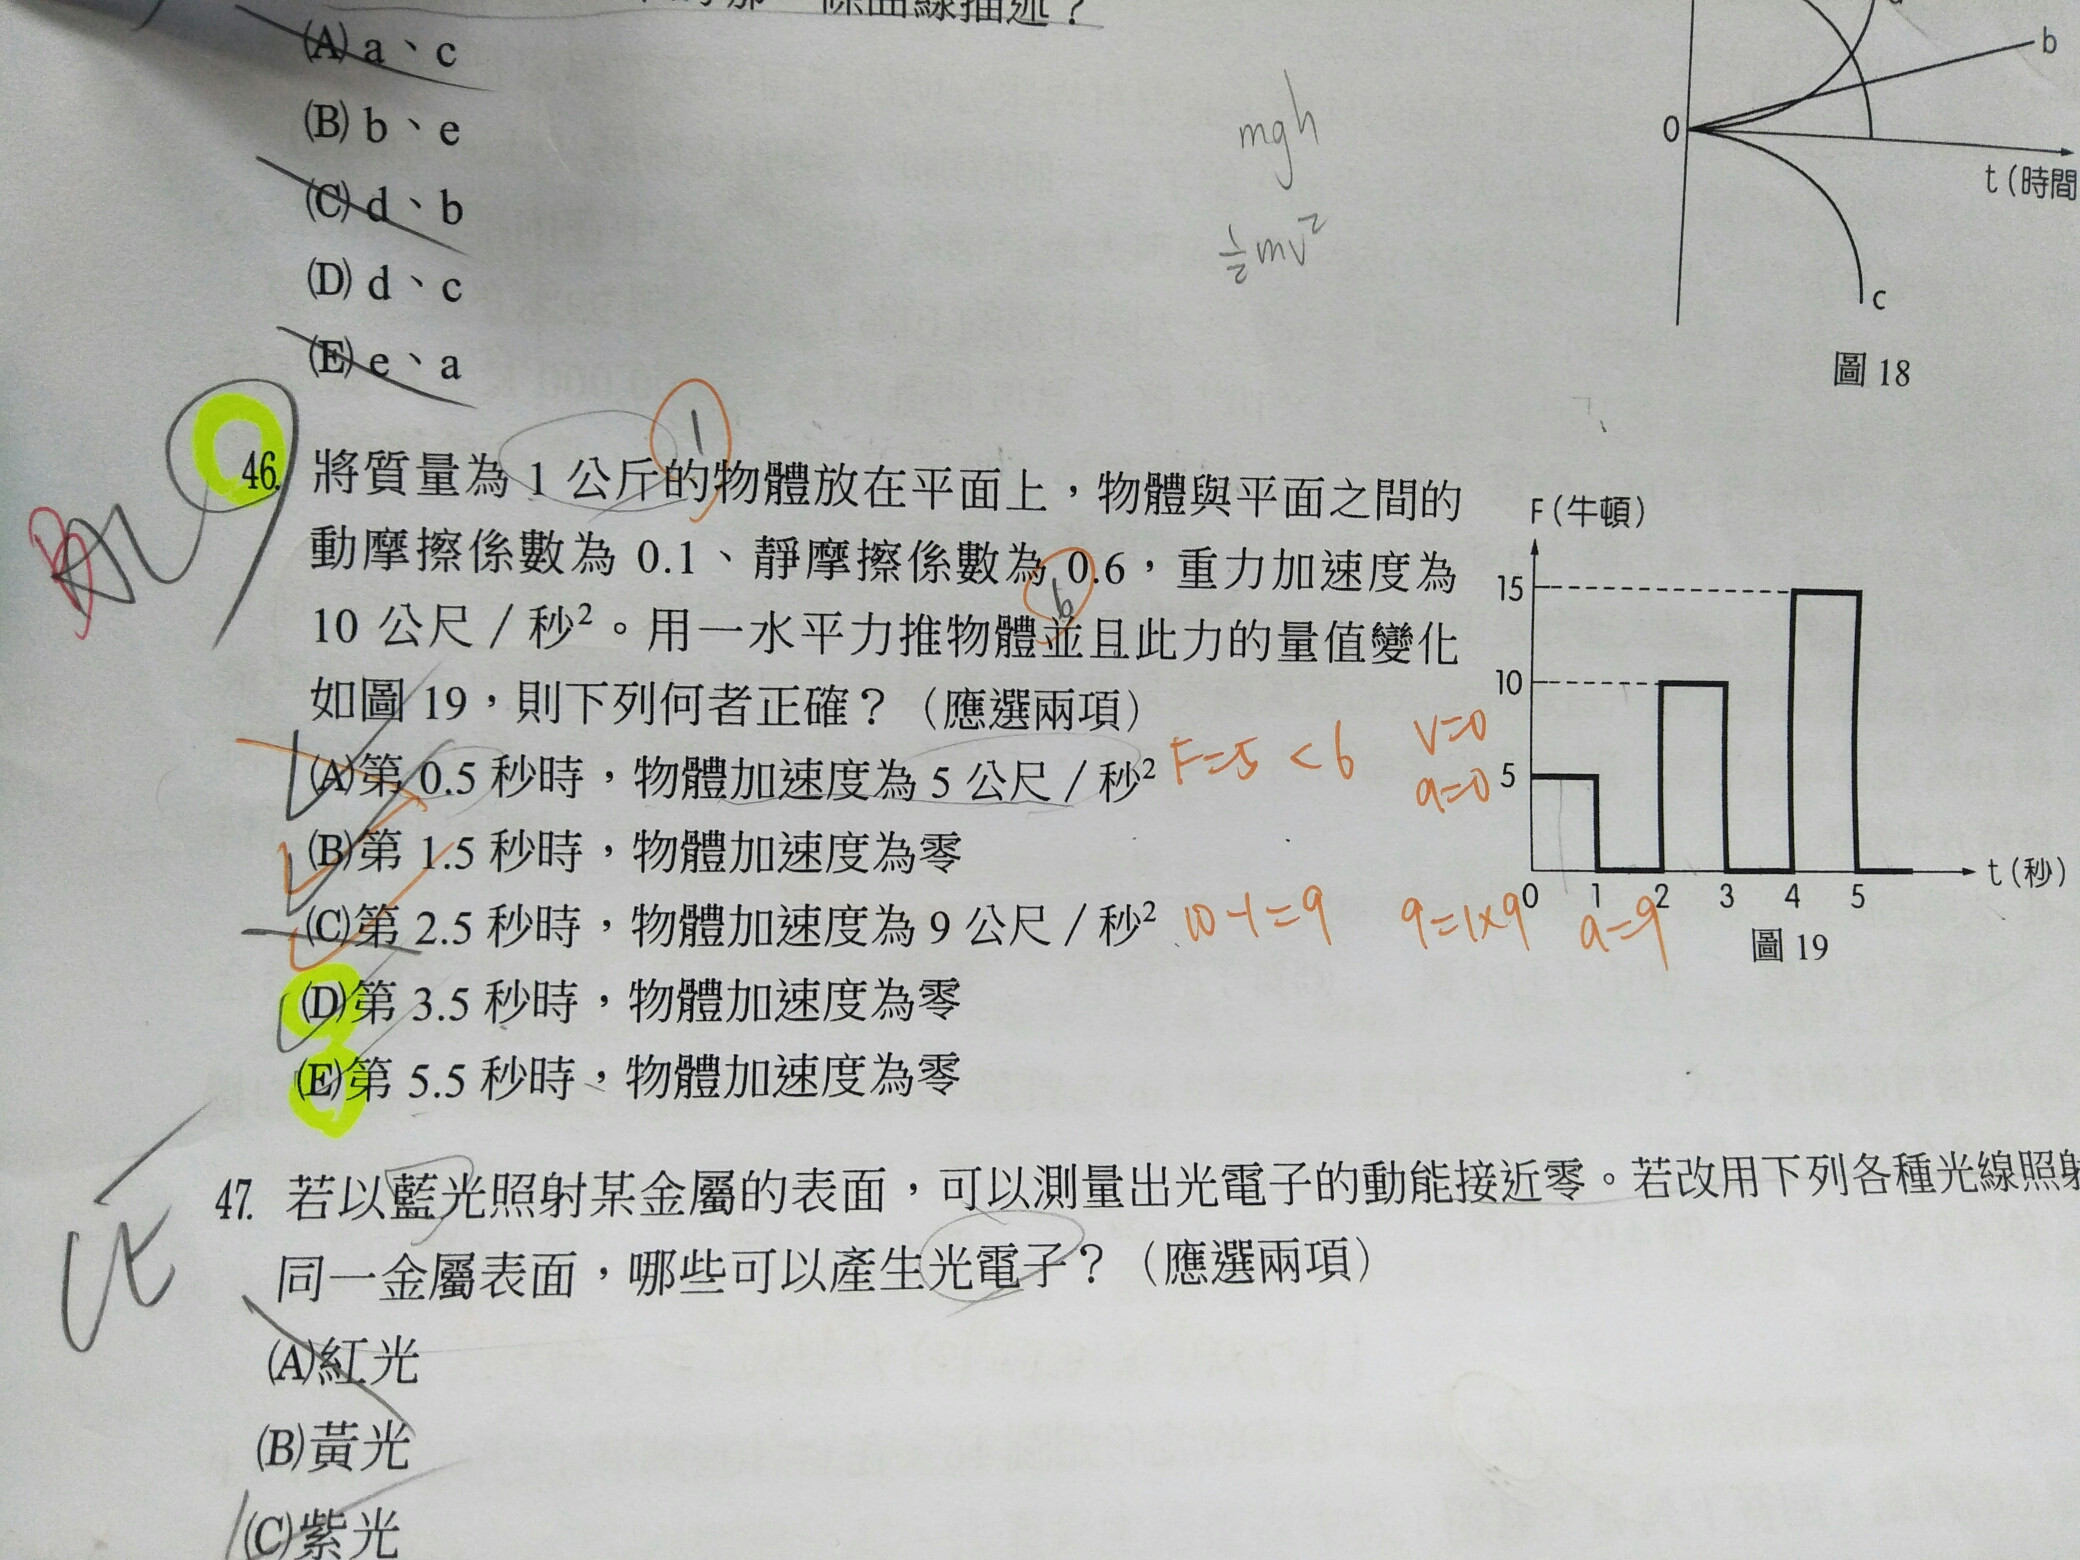 條曲線描述？
(A) a、c
(B) b、e
(C) d、b
(D) d、c
(E) e、a
mgh
½mv²
b
0
t(時間
c
圖 18
46. 將質量為 1 公斤的物體放在平面上，物體與平面之間的
動摩擦係數為 0.1、靜摩擦係數為 0.6，重力加速度為
10 公尺／秒²。用一水平力推物體並且此力的量值變化
如圖 19，則下列何者正確？（應選兩項）
1
6
(A)第 0.5 秒時，物體加速度為 5 公尺／秒²
F=5 < 6
v=0
a=0
(B)第 1.5 秒時，物體加速度為零
(C)第 2.5 秒時，物體加速度為 9 公尺／秒²
10-1=9
9=1×9
a=9
(D)第 3.5 秒時，物體加速度為零
(E)第 5.5 秒時，物體加速度為零
F(牛頓)
15
10
5
0 1 2 3 4 5
t(秒)
圖 19
47. 若以藍光照射某金屬的表面，可以測量出光電子的動能接近零。若改用下列各種光線照射
同一金屬表面，哪些可以產生光電子？（應選兩項）
(A)紅光
(B)黃光
(C)紫光